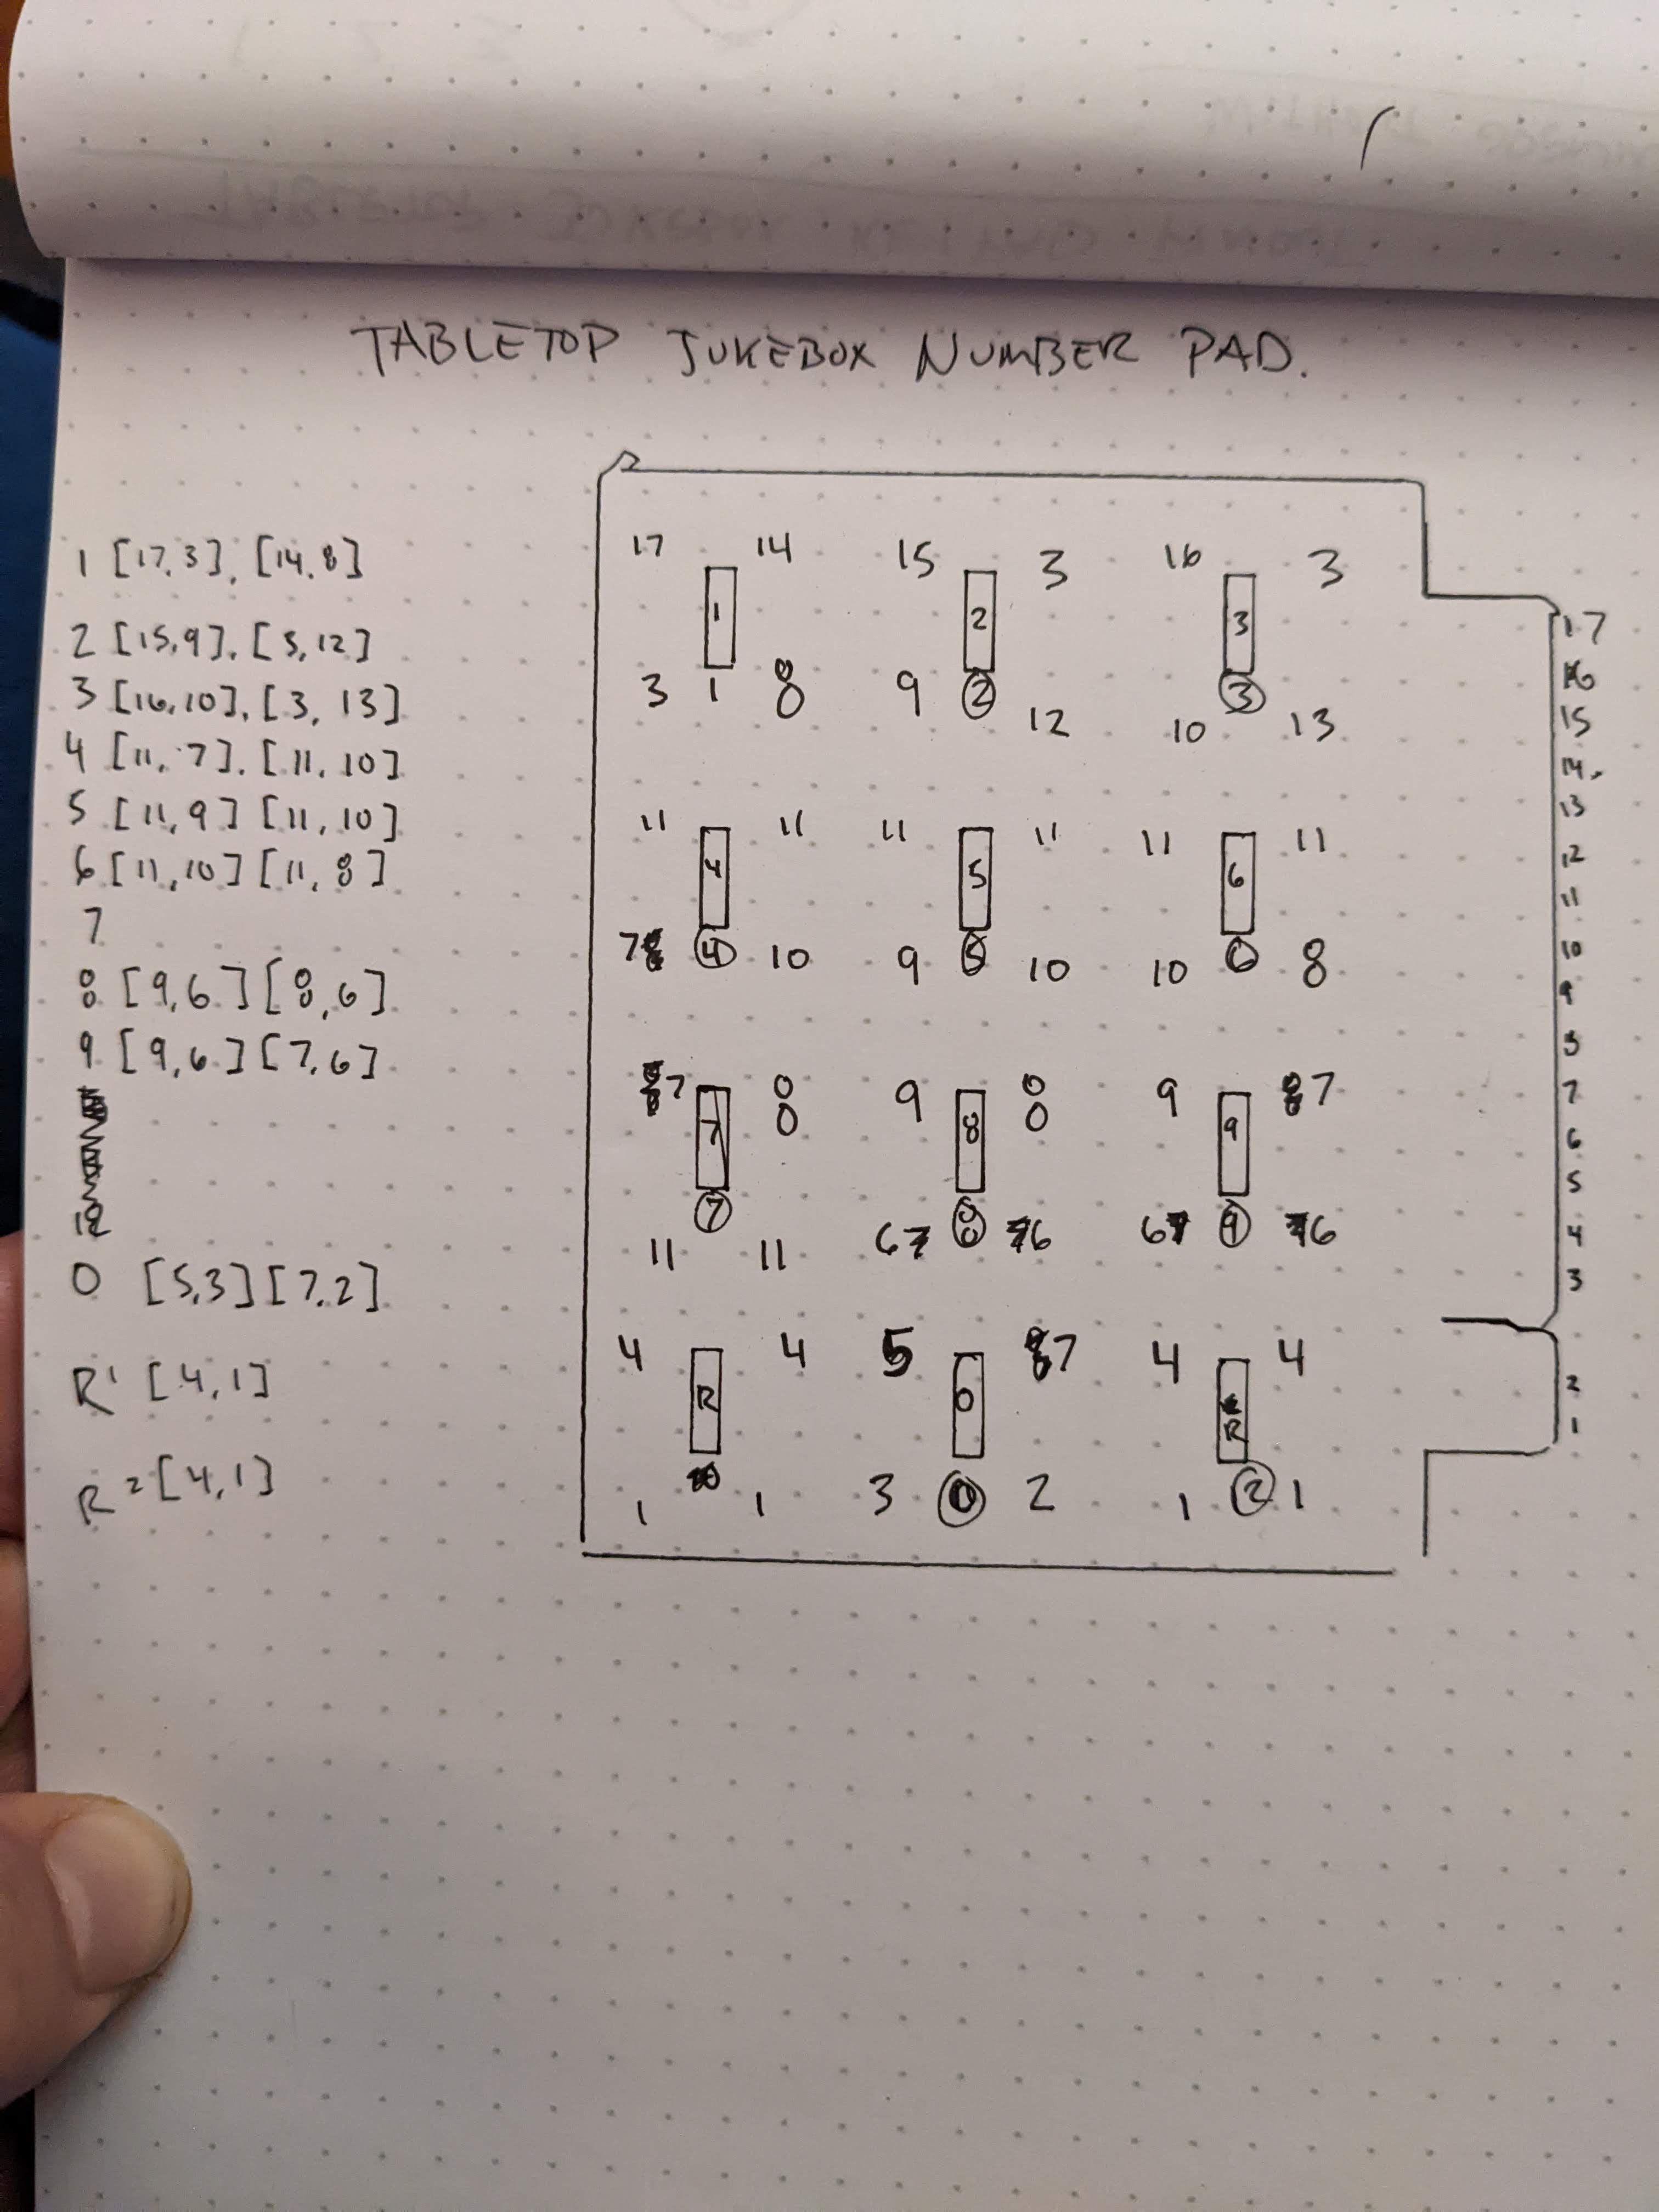 TABLETOP JUKEBOX NUMBER PAD.
1 [17,3], [14,8]
2 [15,9], [3,12]
3 [16,10], [3, 13]
4 [11, 7], [11, 10]
5 [11,9] [11,10]
6 [11,10] [11,8]
7
8 [9,6] [8,6]
9 [9,6] [7,6]
0 [5,3] [7,2]
R1 [4,1]
R2 [4,1]
17 14 15 3 16 3
1 2 3
3 1 8 9 2 12 10 3 13
11 11 11 11 11 11
4 5 6
7 4 10 9 5 10 10 6 8
7 8 9 8 9 7
7 8 9
11 7 11 6 8 6 6 9 6
4 4 5 7 4 4
R 0 R
1 1 3 0 2 1 2 1
17
16
15
14
13
12
11
10
9
8
7
6
5
4
3
2
1